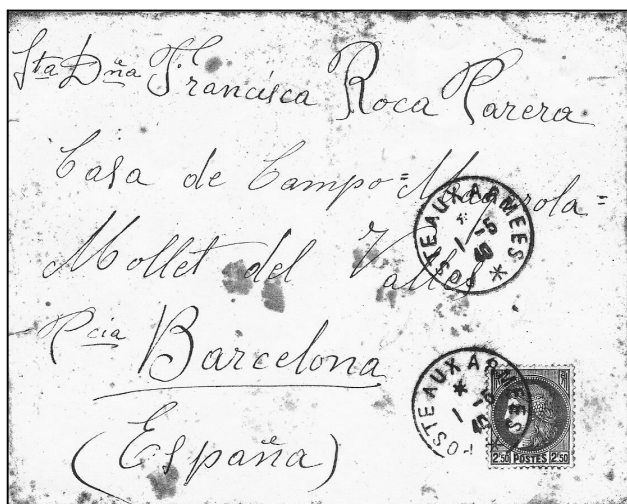 Sta Dña Francisca Roca Parera
Casa de Campo =
Mollet del Vallés
Pcia Barcelona
(España)
POSTE AUX ARMEES *
POSTE AUX ARMEES *
2F50 POSTES 2F50